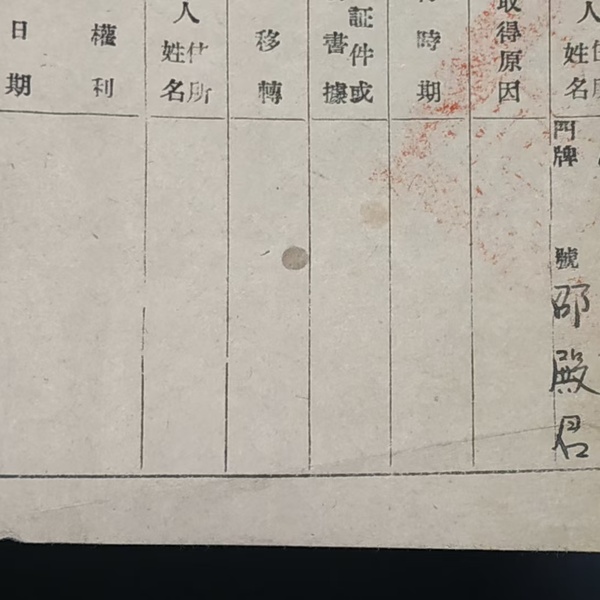 人住所
姓名
門牌
號
邵殿君
取得原因
時期
証件或
書據
移轉
人住所
姓名
權利
日期